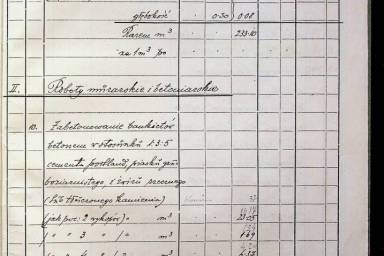 głębokość 0.20 0.08
Razem m³ 233.10
za 1 m³ po
II. Roboty murarskie i betoniarskie
10. Zabetonowanie bankietów
betonem w stosunku 1:3:5
cementu portland, piasku
i żwiru rzecznego
(lub tłuczonego kamienia)
(jak poz: 2 wykopów) m³ 23.05
( " " 3 " ) " m³
( " " 4 " ) " m³